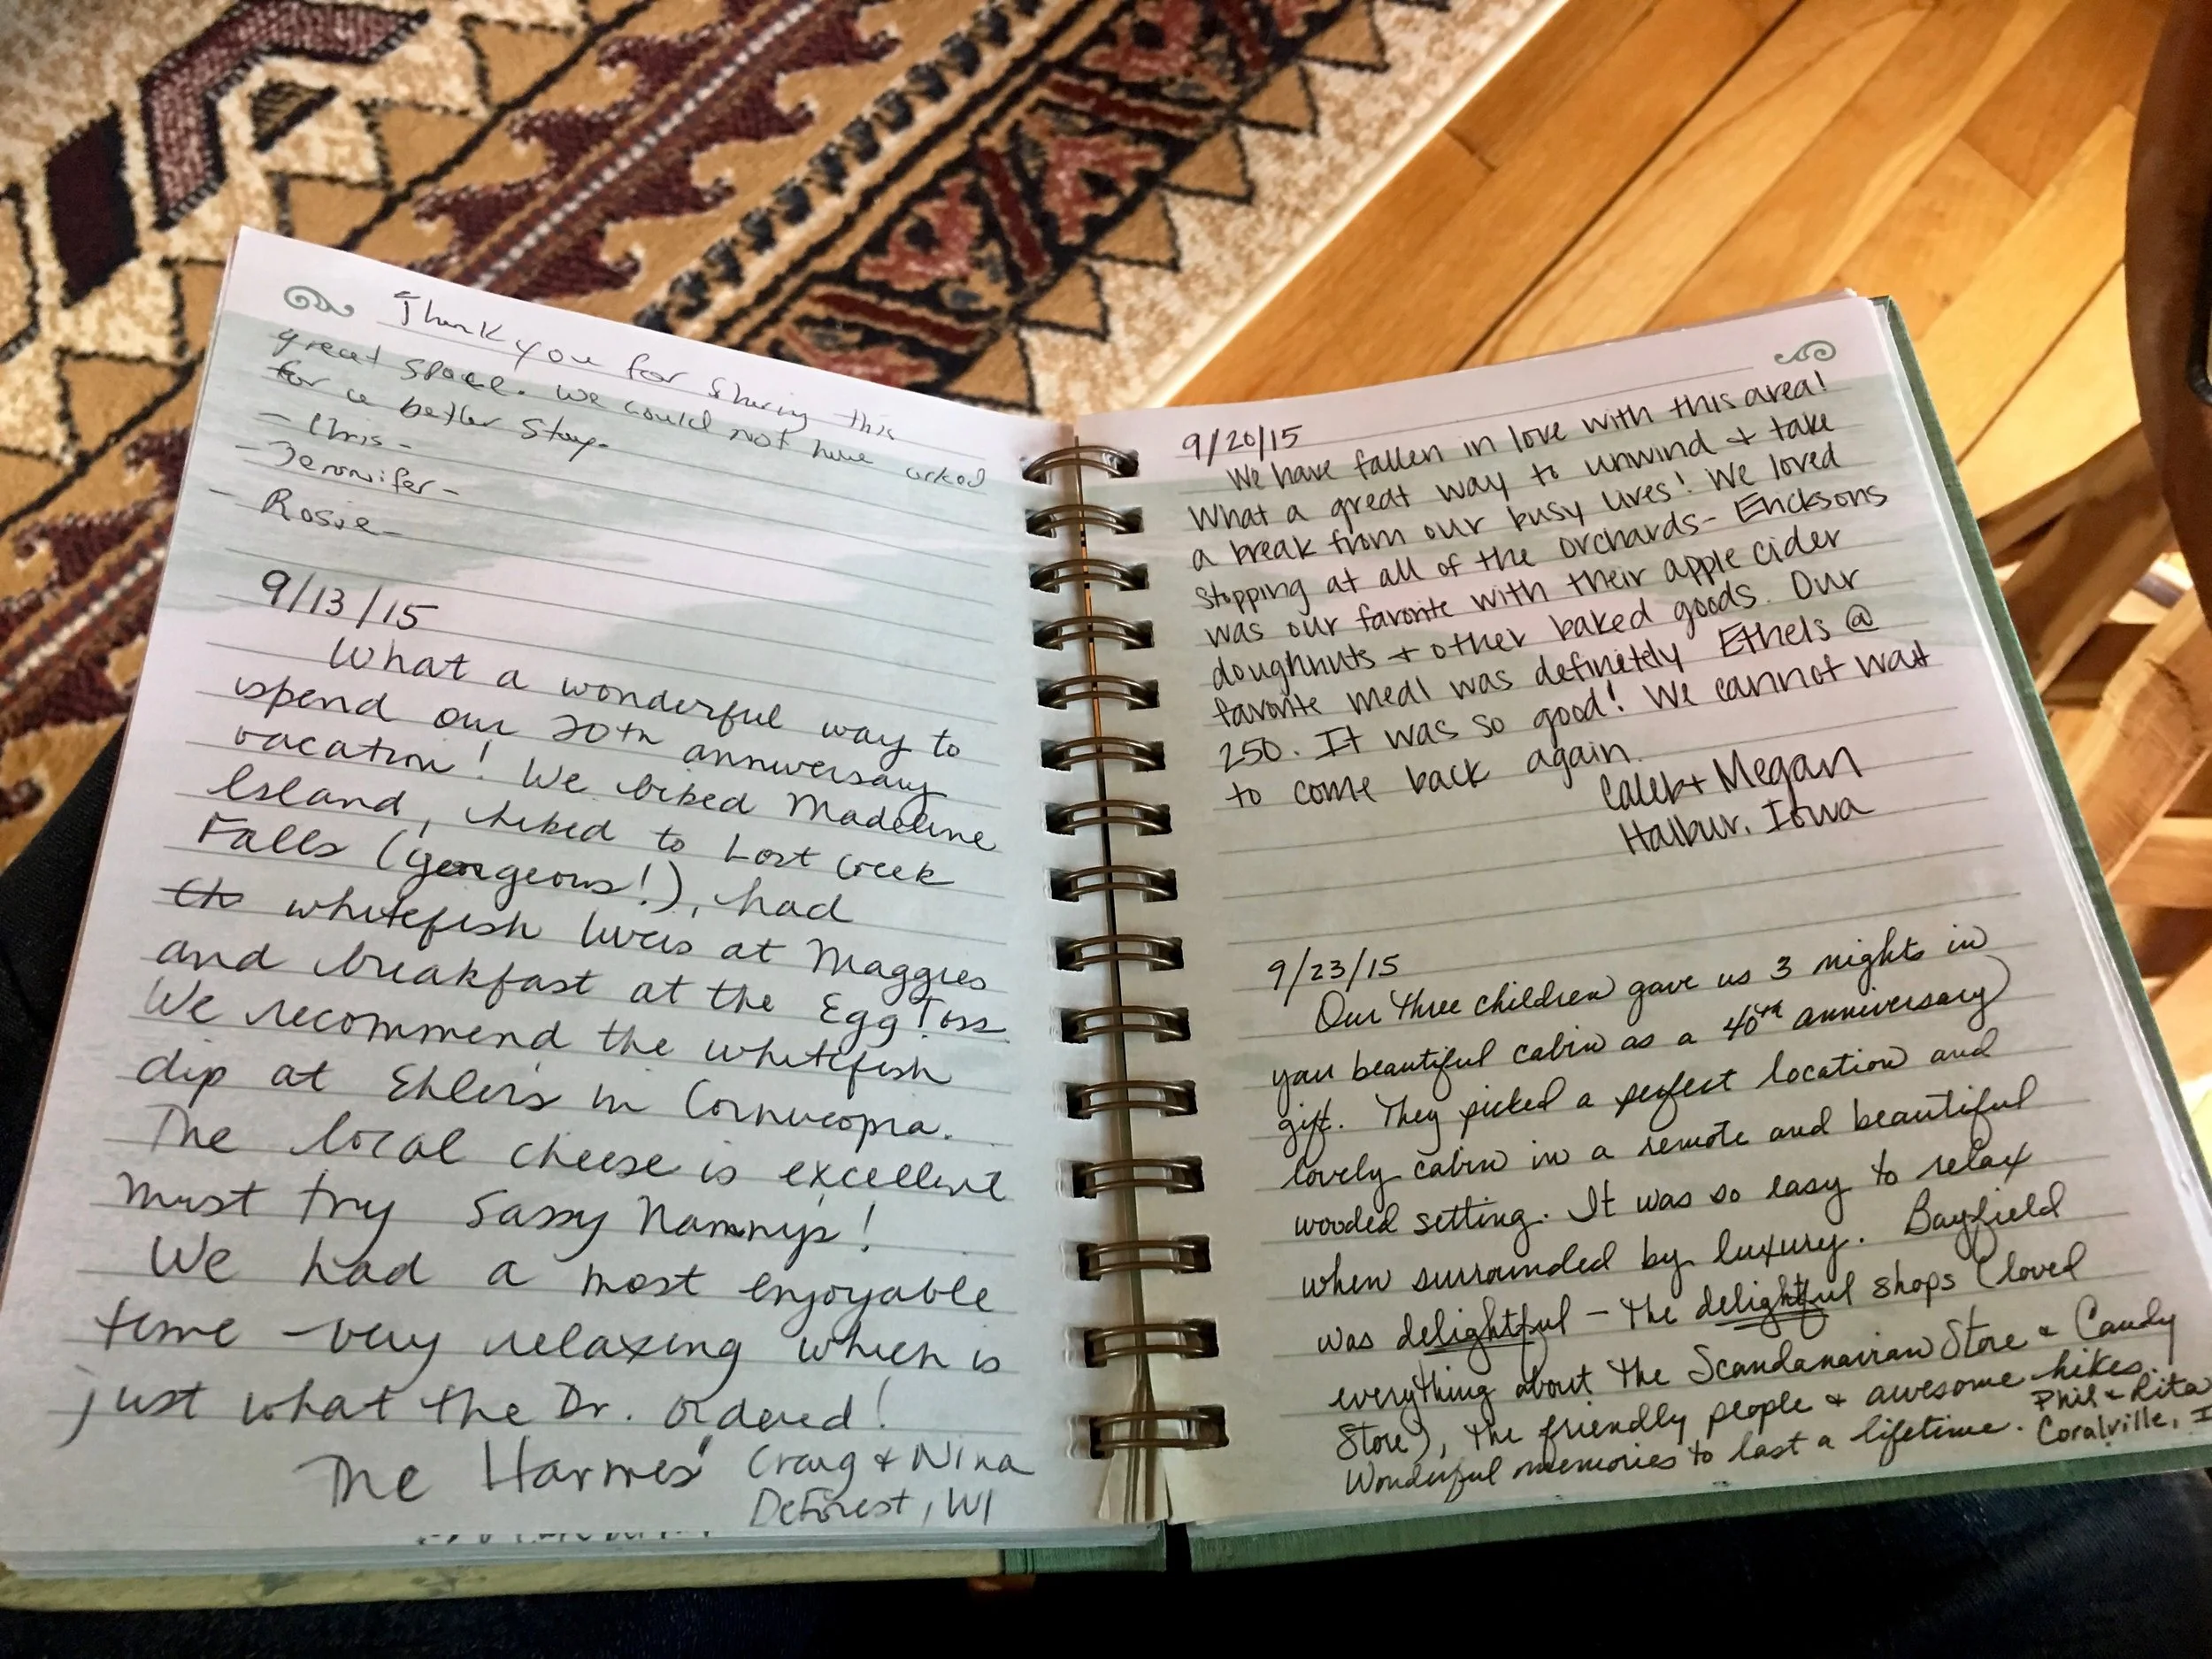 Thank you for Sharing this
great space. We could not have asked
for a better Stay.
- Chris -
- Jennifer -
- Rosie -
9/13/15
What a wonderful way to
spend our 20th anniversary
vacation! We biked Madeline
Island, hiked to Lost Creek
Falls (gorgeous!), had
the whitefish livers at Maggies
and breakfast at the Egg Toss
We recommend the whitefish
dip at Ehlers in Cornucopia.
The local cheese is excellent
must try Sassy Nannys!
We had a most enjoyable
time very relaxing which is
just what the Dr. ordered!
The Harmes' Craig & Nina
DeForest, WI
9/20/15
We have fallen in love with this area!
What a great way to unwind + take
a break from our busy lives! We loved
stopping at all of the orchards - Ericksons
was our favorite with their apple cider
doughnuts + other baked goods. Our
favorite meal was definitely Ethels @
250. It was so good! We cannot wait
to come back again.
Caleb + Megan
Halbur, Iowa
9/23/15
Our three children gave us 3 nights in
your beautiful cabin as a 40th anniversary
gift. They picked a perfect location and
lovely cabin in a remote and beautiful
wooded setting. It was so easy to relax
when surrounded by luxury. Bayfield
was delightful - the delightful shops (loved
everything about the Scandanavian Store & Candy
Store), the friendly people & awesome hikes.
Wonderful memories to last a lifetime. Phil & Rita
Coralville, I